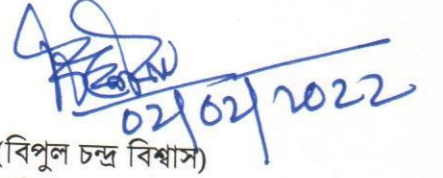 02/02/2022
(বিপুল চন্দ্র বিশ্বাস)